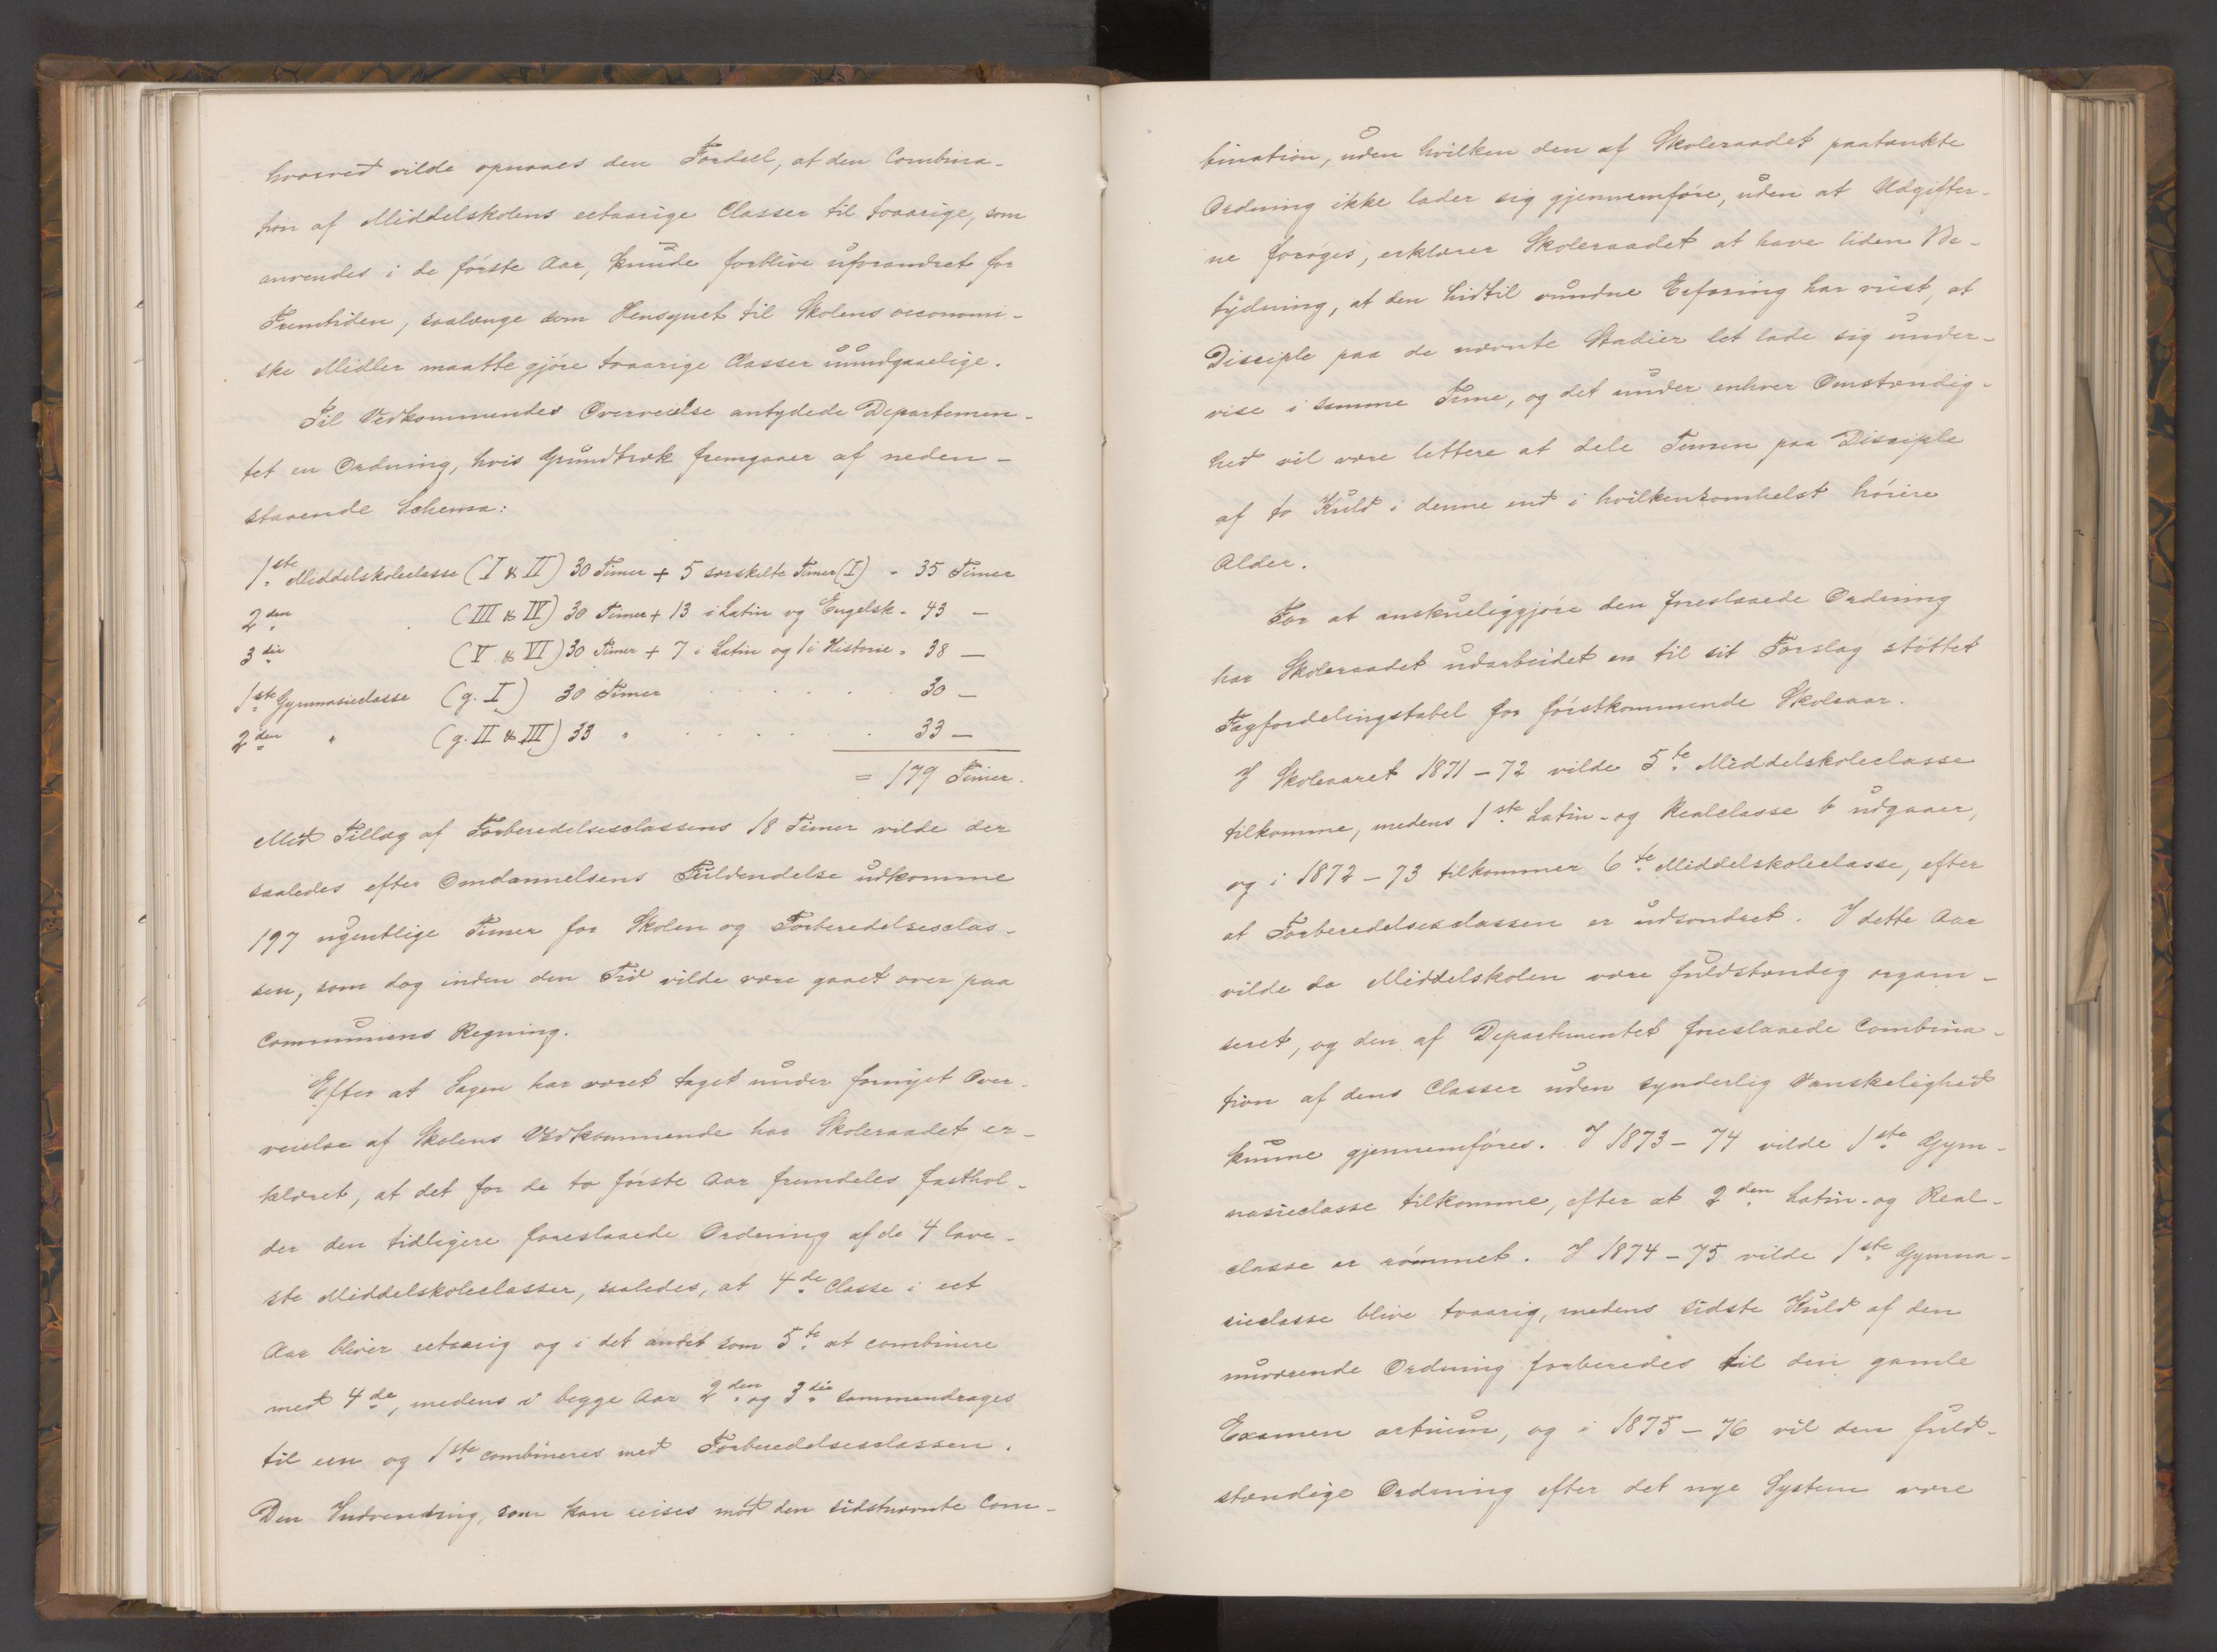 hvorved vilde opnaaes den Fordeel, at den Combina-
tion af Middelskolens eetaarige Classer til toaarige, som
anvendes i de første Aar, kunde forblive uforandret for
Fremtiden, saalænge som Hensynet til Skolens oeconomi-
ske Midler maatte gjøre toaarige Classer uundgaaelige.
Til Vedkommendes Overveielse antydede Departemen-
tet en Ordning, hvis Grundtræk fremgaaer af neden-
staaende Schema:
1ste Middelskoleclasse (I & II) 30 Timer + 5 særskilte Timer (I) = 35 Timer
2den " (III & IV) 30 Timer + 13 i Latin og Engelsk = 43 —
3die (V & VI) 30 Timer + 7 i Latin og 1 i Historie = 38 —
1ste Gymnasieclasse (g. I) 30 Timer . . . . . 30 —
2den " (g. II & III) 33 " . . . . . 33 —
= 179 Timer.
Med Tillæg af Forberedelsesclassens 18 Timer vilde der
saaledes efter Omdannelsens Fuldendelse udkomme
197 ugentlige Timer for Skolen og Forberedelsesclas-
sen, som dog inden den Tid vilde være gaaet over paa
Communens Regning.
Efter at Sagen har været taget under fornyet Over-
veielse af Skolens Vedkommende har Skoleraadet er-
klæret, at det for de to første Aar fremdeles fasthol-
der den tidligere foreslaaede Ordning af de 4 lave-
ste Middelskoleclasser, saaledes, at 4de Classe i eet
Aar bliver eetaarig og i det andet som 5te at combinere
med 4de, medens i begge Aar 2den og 3die sammendrages
til een og 1ste combineres med Forberedelsesclassen.
Den Indvending, som kan reises mod den sidstnævnte Com-
bination, uden hvilken den af Skoleraadet paatænkte
Ordning ikke lader sig gjennemføre, uden at Udgifter-
ne forøges, erklærer Skoleraadet at have liden Be-
tydning, at den hidtil vundne Erfaring har viist, at
Disciple paa de nævnte Stadier let lade sig under-
vise i samme Time, og det under enhver Omstændig-
hed vil være lettere at dele Timen paa Disciple
af to Kuld i denne end i hvilkensomhelst høiere
Alder.
For at anskueliggjøre den foreslaaede Ordning
har Skoleraadet udarbeidet en til sit Forslag støttet
Fagfordelingstabel for førstkommende Skoleaar.
I Skoleaaret 1871 – 72 vilde 5te Middelskoleclasse
tilkomme, medens 1ste Latin- og Realclasse b udgaaer,
og i 1872 – 73 tilkommer 6te Middelskoleclasse, efter
at Forberedelsesclassen er udsondret. I dette Aar
vilde da Middelskolen være fuldstændig organi-
seret, og den af Departementet foreslaaede Combina-
tion af dens Classer uden synderlig Vanskelighed
kunne gjennemføres. I 1873 – 74 vilde 1ste Gym-
nasieclasse tilkomme, efter at 2den Latin- og Real-
classe er rømmet. I 1874 – 75 vilde 1ste Gymna-
sieclasse blive toaarig, medens sidste Kuld af den
nuværende Ordning forberedes til den gamle
Examen artium, og i 1875 – 76 vil den fuld-
stændige Ordning efter det nye System være